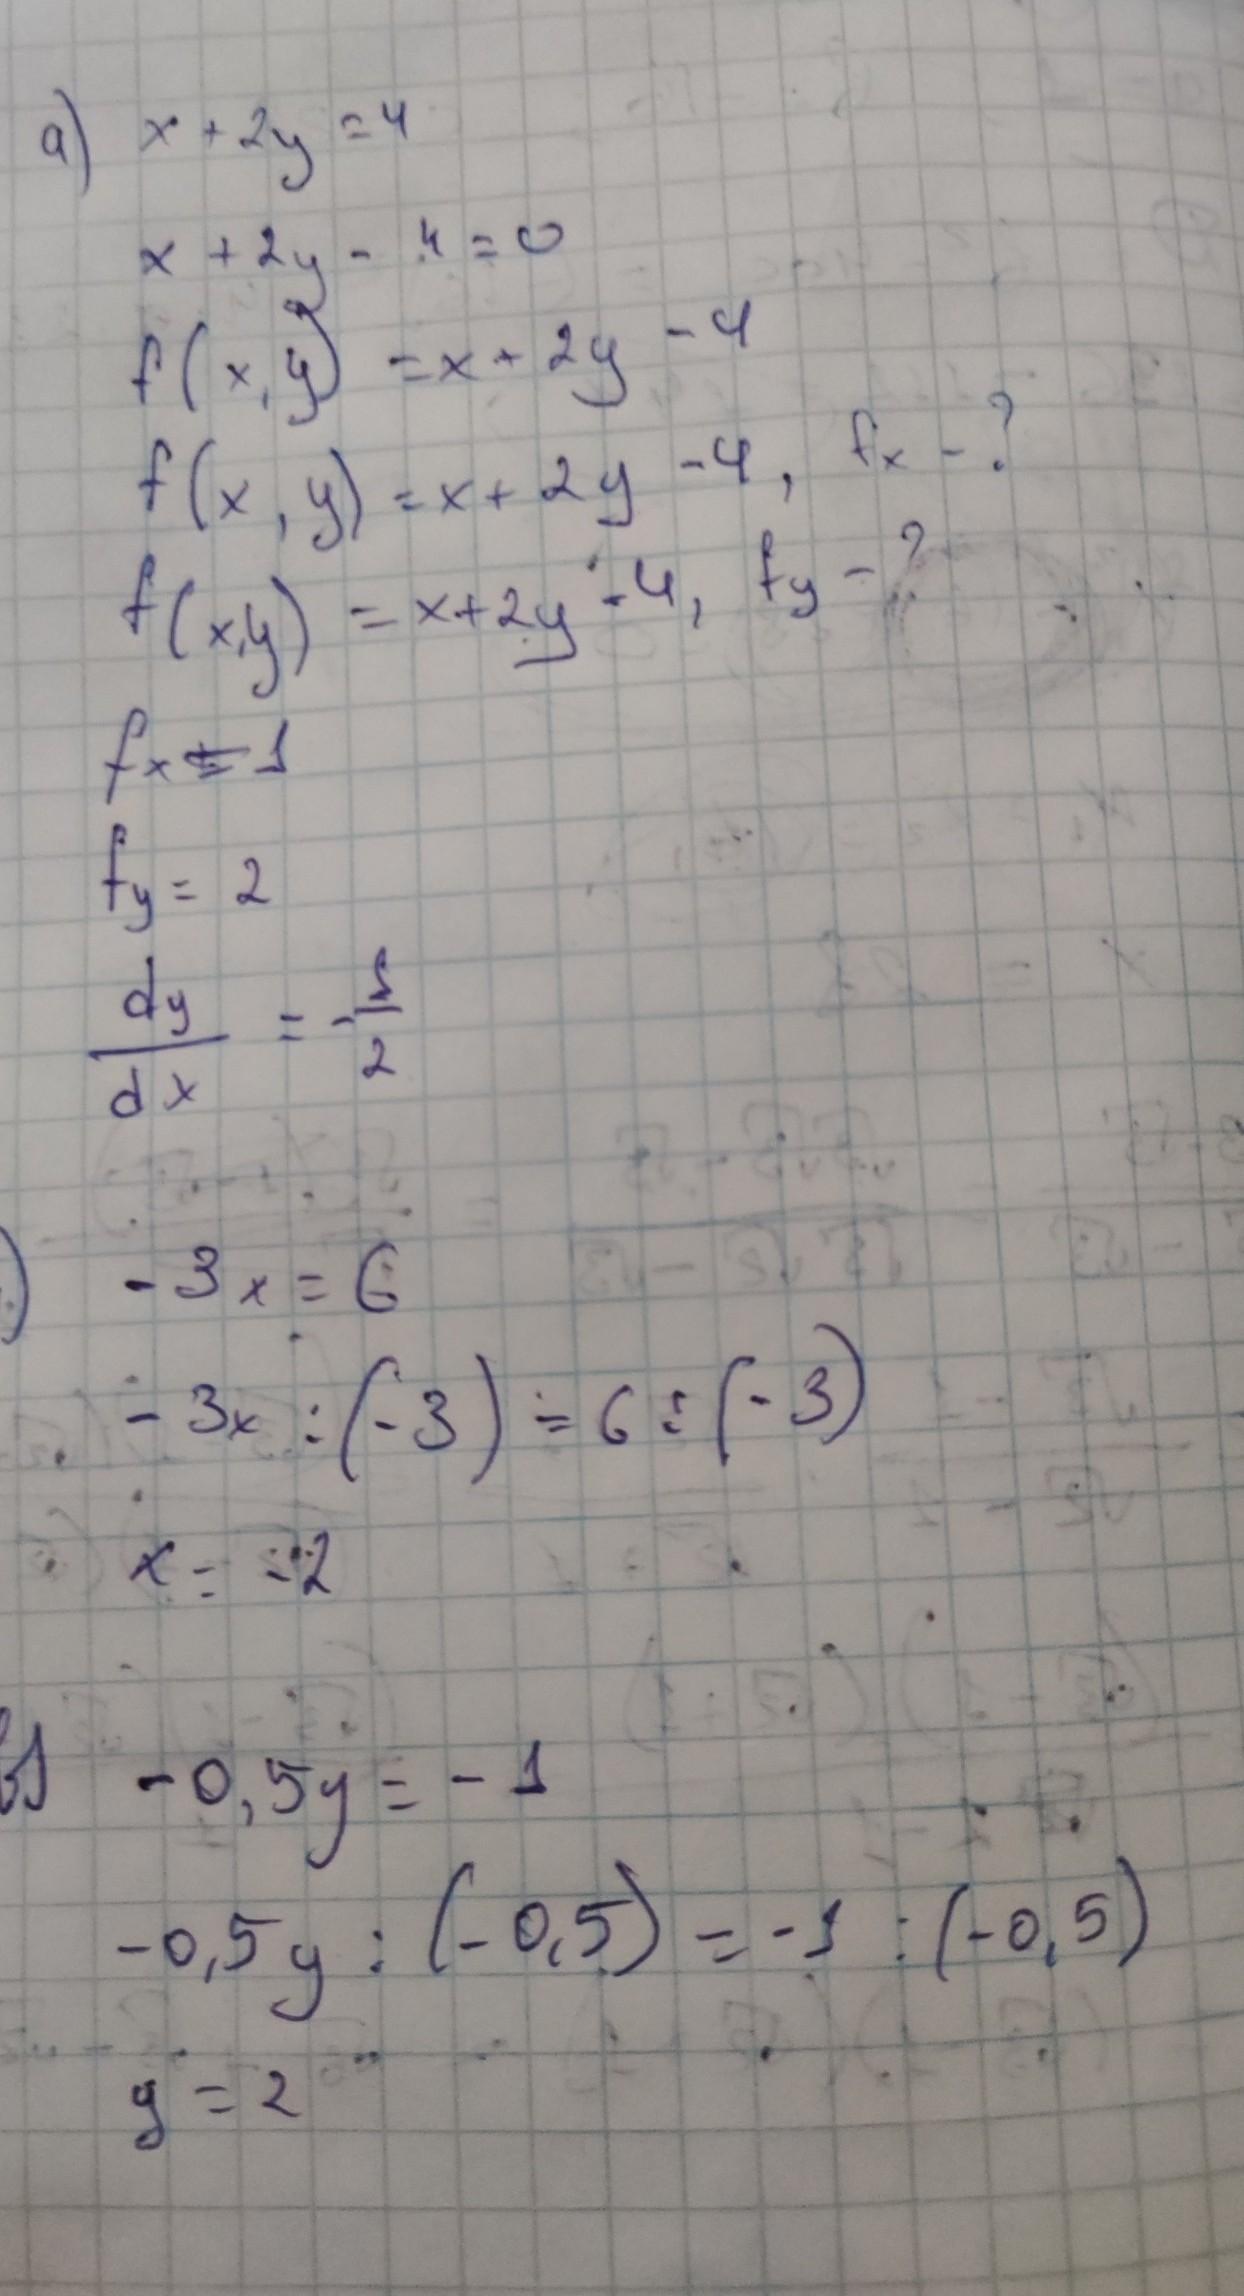 a) x + 2y = 4
x + 2y - 4 = 0
f(x,y) = x + 2y - 4
f(x, y) = x + 2y - 4, fx - ?
f(x,y) = x + 2y - 4, fy - ?
fx = 1
fy = 2
dy/dx = -1/2
) -3x = 6
-3x : (-3) = 6 : (-3)
x = -2
в) -0,5y = -1
-0,5y : (-0,5) = -1 : (-0,5)
y = 2